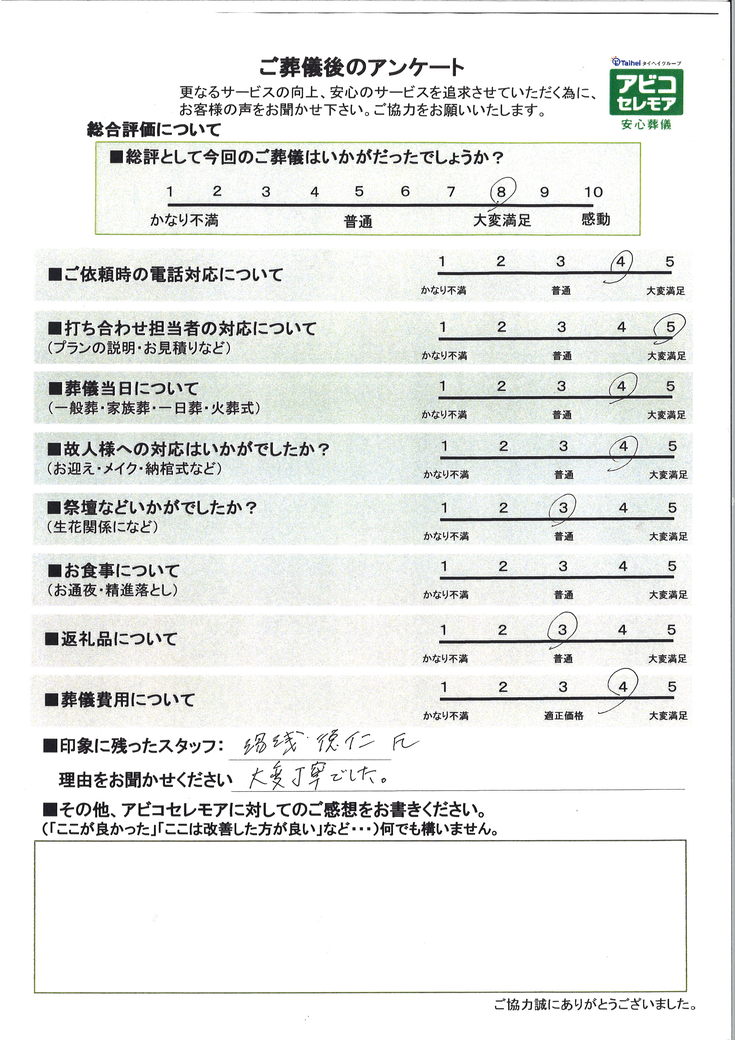 ご葬儀後のアンケート
Taihei タイヘイグループ
アビコ
セレモア
安心葬儀
更なるサービスの向上、安心のサービスを追求させていただく為に、
お客様の声をお聞かせ下さい。ご協力をお願いいたします。
総合評価について
■総評として今回のご葬儀はいかがだったでしょうか？
1 2 3 4 5 6 7 8 9 10
かなり不満 普通 大変満足 感動
■ご依頼時の電話対応について
1 2 3 4 5
かなり不満 普通 大変満足
■打ち合わせ担当者の対応について
（プランの説明・お見積りなど）
1 2 3 4 5
かなり不満 普通 大変満足
■葬儀当日について
（一般葬・家族葬・一日葬・火葬式）
1 2 3 4 5
かなり不満 普通 大変満足
■故人様への対応はいかがでしたか？
（お迎え・メイク・納棺式など）
1 2 3 4 5
かなり不満 普通 大変満足
■祭壇などいかがでしたか？
（生花関係になど）
1 2 3 4 5
かなり不満 普通 大変満足
■お食事について
（お通夜・精進落とし）
1 2 3 4 5
かなり不満 普通 大変満足
■返礼品について
1 2 3 4 5
かなり不満 普通 大変満足
■葬儀費用について
1 2 3 4 5
かなり不満 適正価格 大変満足
■印象に残ったスタッフ： 徳仁 氏
理由をお聞かせください 大変丁寧でした。
■その他、アビコセレモアに対してのご感想をお書きください。
（「ここが良かった」「ここは改善した方が良い」など・・・）何でも構いません。
ご協力誠にありがとうございました。